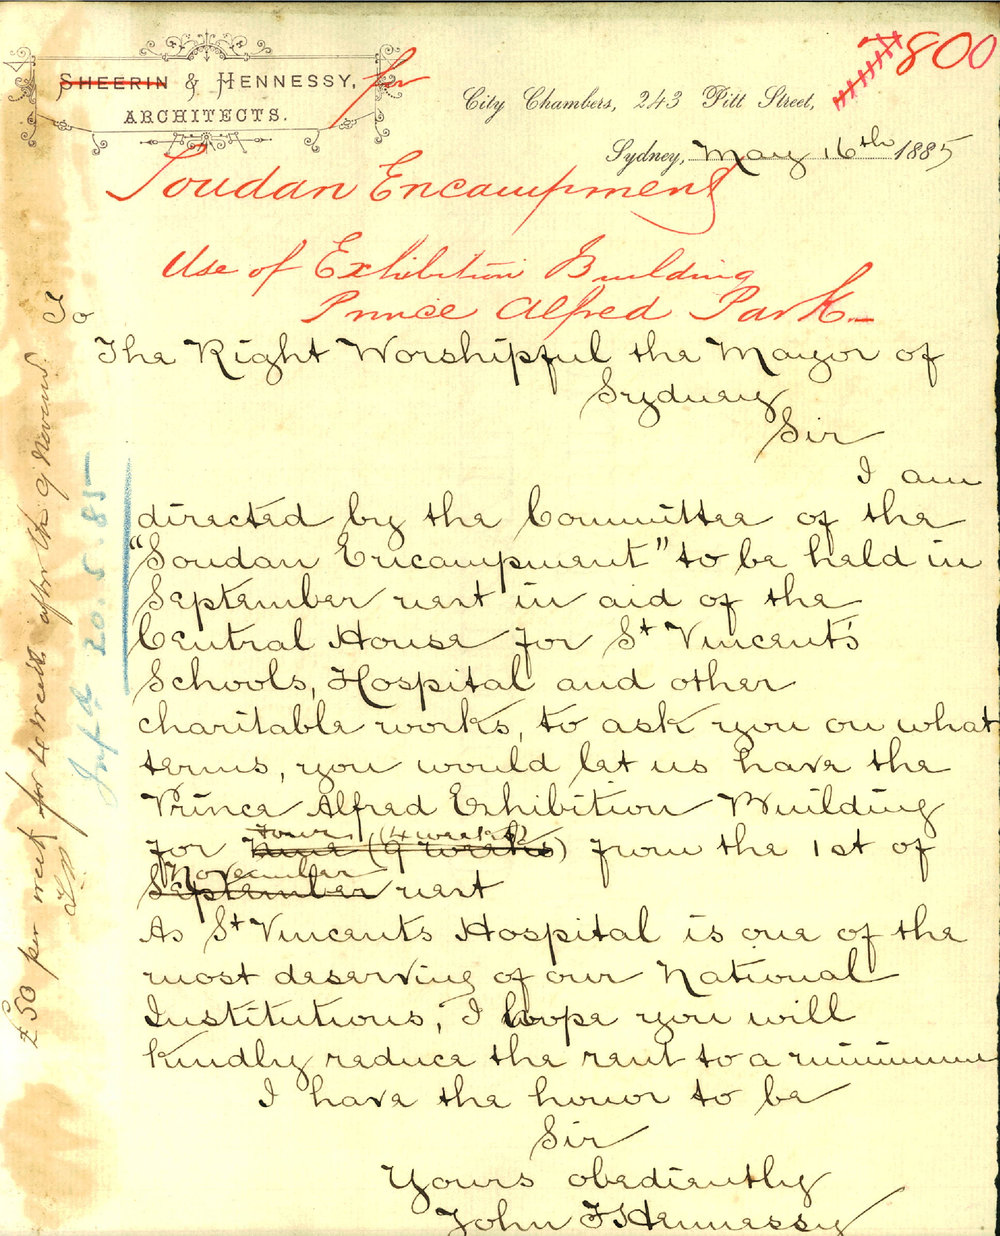 800
SHEERIN & HENNESSY, for
ARCHITECTS.
City Chambers, 243 Pitt Street,
Sydney, May 16th 1885
Soudan Encampment
Use of Exhibition Building
Prince Alfred Park
To
The Right Worshipful the Mayor of
Sydney
Sir
I am
directed by the Committee of the
"Soudan Encampment" to be held in
September next in aid of the
Central House for St Vincent's
Schools, Hospital and other
charitable works, to ask you on what
terms, you would let us have the
Prince Alfred Exhibition Building
four (4 weeks)
for nine (9 weeks) from the 1st of
November
September next
As St Vincents Hospital is one of the
most deserving of our National
Institutions, I hope you will
kindly reduce the rent to a minimum
I have the honor to be
Sir
Yours obediently
John F Hennessy
£50 per week for 4 weeks after the 9 Novemr.
Infd 20.5.85